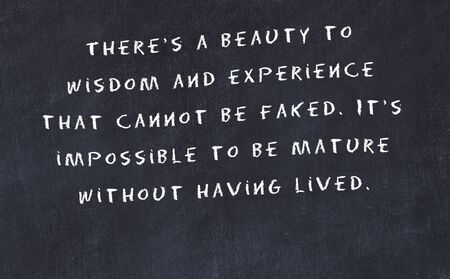 THERE'S A BEAUTY TO
WISDOM AND EXPERIENCE
THAT CANNOT BE FAKED. IT'S
IMPOSSIBLE TO BE MATURE
WITHOUT HAVING LIVED.